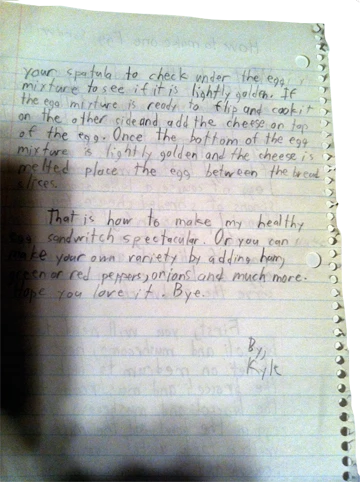 your spatula to check under the egg
mixture to see if it is lightly golden. If
the egg mixture is ready to flip and cook it
on the other side and, add the cheese on top
of the egg. Once the bottom of the egg
mixture is lightly golden and the cheese is
melted place the egg between the bread
slices
That is how to make my healthy
egg sandwitch spectacular. Or you can
make your own variety by adding ham,
green or red peppers, onions and much more.
Hope you love it. Bye.
By,
Kyle